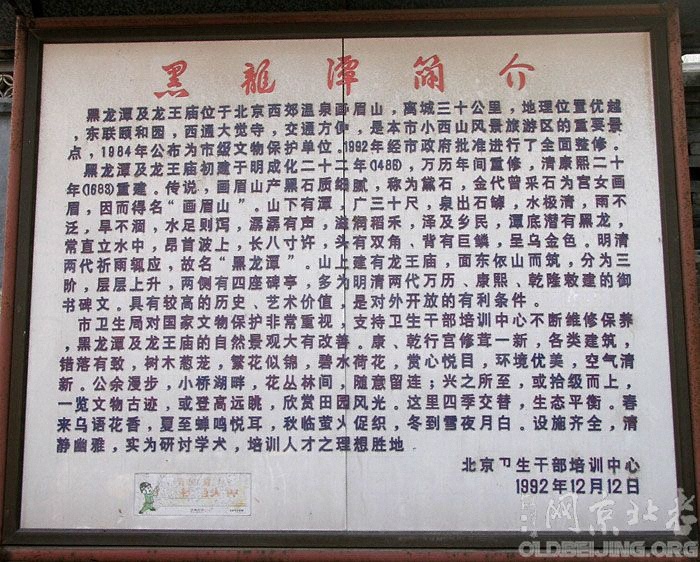 黑龍潭简介
黑龙潭及龙王庙位于北京西郊温泉画眉山，离城三十公里，地理位置优越
，东联颐和园，西通大觉寺，交通方便，是本市小西山风景旅游区的重要景
点，1984年公布为市级文物保护单位。1992年经市政府批准进行了全面整修。
黑龙潭及龙王庙初建于明成化二十二年(1486)，万历年间重修，清康熙二十
年(1683)重建。传说，画眉山产黑石质细腻，称为黛石，金代曾采石为宫女画
眉，因而得名“画眉山”。山下有潭，广三十尺，泉出石罅，水极清，雨不
泛，旱不涸，水足则泻，潺潺有声，滋润稻禾，泽及乡民，潭底潜有黑龙，
常直立水中，昂首波上，长八寸许，头有双角、背有巨鳞，呈乌金色。明清
两代祈雨辄应，故名“黑龙潭”。山上建有龙王庙，面东依山而筑，分为三
阶，层层上升，两侧有四座碑亭，多为明清两代万历、康熙、乾隆敕建的御
书碑文。具有较高的历史、艺术价值，是对外开放的有利条件。
市卫生局对国家文物保护非常重视，支持卫生干部培训中心不断维修保养
，黑龙潭及龙王庙的自然景观大有改善。康、乾行宫修葺一新，各类建筑，
错落有致，树木葱茏，繁花似锦，碧水荷花，赏心悦目，环境优美，空气清
新。公余漫步，小桥湖畔，花丛林间，随意留连；兴之所至，或拾级而上，
一览文物古迹，或登高远眺，欣赏田园风光。这里四季交替，生态平衡。春
来鸟语花香，夏至蝉鸣悦耳，秋临萤火促织，冬到雪夜月白。设施齐全，清
静幽雅，实为研讨学术，培训人才之理想胜地
北京卫生干部培训中心
1992年12月12日
网京北老
OLDBEIJING.ORG